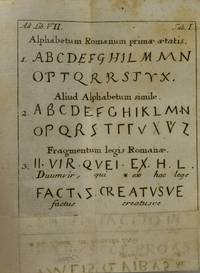 Ad Lib. VII. Tab. I.
Alphabetum Romanum primæ ætatis.
1. A B C D E F G H I L M M N
O P T Q R R S T V X.
Aliud Alphabetum simile.
2. A B C D E F G H I K L M N
O P Q R S T T T V X Y Z
Fragmentum legis Romanæ.
3. II·VIR·QVEI·EX·H·L·
Duumvir, qui ex hac lege
FACTVS CREATVSVE
factus creatusve